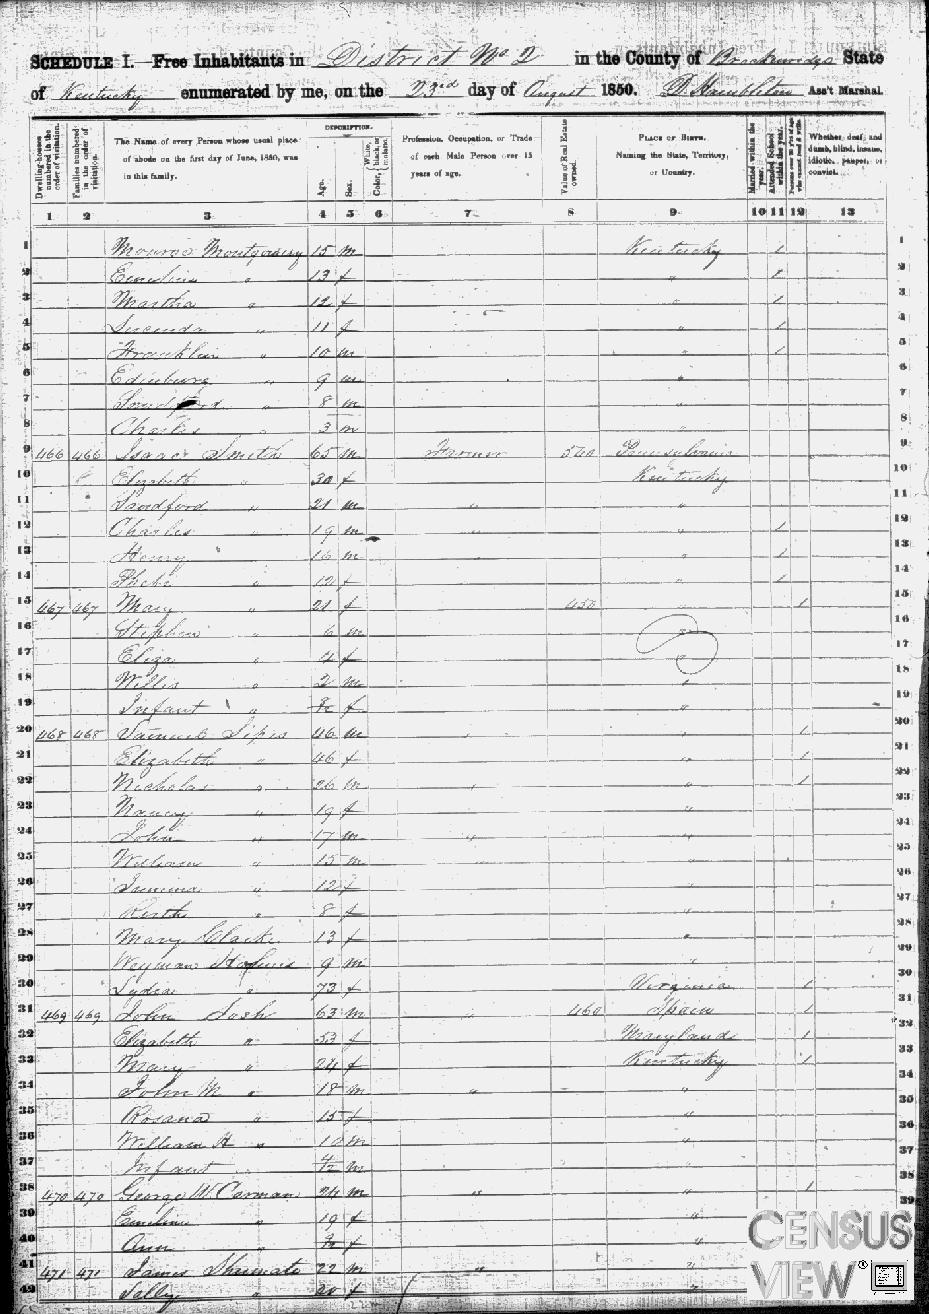 SCHEDULE I.—Free Inhabitants in District No 2 in the County of Breckenridge State
of Kentucky enumerated by me, on the 23rd day of August 1850. Ass't Marshal.
Dwelling-houses numbered in the order of visitation.
Families numbered in the order of visitation.
The Name of every Person whose usual place of abode on the first day of June, 1850, was in this family.
DESCRIPTION.
Age.
Sex.
Color, White, black, or mulatto.
Profession, Occupation, or Trade of each Male Person over 15 years of age.
Value of Real Estate owned.
PLACE OF BIRTH. Naming the State, Territory, or Country.
Married within the year.
Attended School within the year.
Persons over 20 y'rs of age who cannot read & write.
Whether deaf and dumb, blind, insane, idiotic, pauper, or convict.
1 2 3 4 5 6 7 8 9 10 11 12 13
1 Monroe Montgomery 15 m Kentucky 1 1
2 Emeline " 13 f " 1 2
3 Martha " 12 f " 1 3
4 Lucinda " 11 f " 1 4
5 Franklin " 10 m " 1 5
6 Edinburg " 9 m " 6
7 " 8 m " 7
8 Charles " 3 m " 8
9 466 466 Isaac Smith 65 m Farmer 500 Pennsylvania 9
10 Elizabeth " 30 f Kentucky 10
11 Sandford " 21 m " " 11
12 Charles " 19 m " " 1 12
13 Henry " 16 m " " 1 13
14 Phebe " 12 f " 1 14
15 467 467 Mary " 21 f 450 " 1 15
16 Stephen " 6 m " 16
17 Eliza " 4 f " 17
18 Willis " 2 m " 18
19 Infant " f " 19
20 468 468 Samuel Sipes 46 m " " 1 20
21 Elizabeth " 46 f " 1 21
22 Nicholas " 26 m " " 1 22
23 Nancy " 19 f " 23
24 John " 17 m " " 24
25 William " 15 m " " 25
26 Jemima " 12 f " 26
27 " 8 f " 27
28 Mary Clarke 13 f " 28
29 9 m " 29
30 Lydia " 73 f Virginia 1 30
31 469 469 John Josh 63 m " 460 Spain 1 31
32 Elizabeth " 53 f Maryland 1 32
33 Mary " 24 f Kentucky 1 33
34 John M " 18 m " " 34
35 Rosana " 15 f " 35
36 William H " 10 m " 36
37 Infant " 4/12 m " 37
38 470 470 George W. Carman 24 m " " 1 38
39 Emeline " 19 f " 39
40 Ann " f " 40
41 471 471 James Shumate 22 m " "
42 Sally " 20 f "
CENSUS
VIEW®